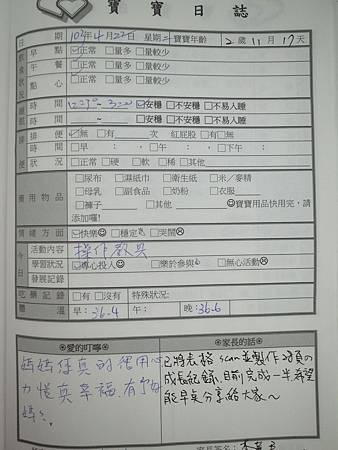 寶寶日誌
日期 103年4月22日 星期二 寶寶年齡 2歲11月17天
飲食狀況 早點 ☑正常 □量多 □量較少
午餐 ☑正常 □量多 □量較少
點心 □正常 □量多 □量較少
睡眠 時間 12:30~3:00 ☑安穩 □不安穩 □不易入睡
時間 ~ □安穩 □不安穩 □不易入睡
排便 排便 ☑無 □有 次 紅屁股 □有□無
時間 □早 : ,□午 : ,□下午 :
狀況 □正常 □硬 □軟 □稀 □其他
備用物品 □尿布 □濕紙巾 □衛生紙 □米／麥精
□母乳 □副食品 □奶粉 □衣服
□褲子 □其他 ☺寶寶用品快用完,請
添加囉!
情緒方面 ☑快樂☺ □穩定 □哭鬧☹
今日 活動內容 操作教具
學習狀況 ☑專心投入☺ □樂於參與 □無心活動☹
發展記錄
吃藥記錄 □有 □沒有 特殊狀況:
體溫 早:36.4 午: 晚:36.6
愛的叮嚀 家長的話
媽媽您真的很用心
力 真幸福,有
媽~。
已將表格scan並製作
成長紀錄,目前完成一半,希望
能早點分享給大家~
家長簽名: